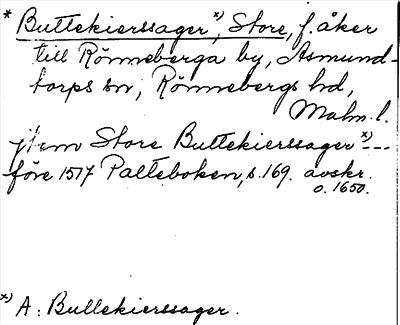 * Buttekierssager x), Store, f. åker
till Rönneberga by, Asmund-
torps sn, Rönnebergs hd,
Malm. l.
jtem Store Buttekierssager x) ---
före 1517 Palteboken, s. 169. avskr.
o. 1650.
x) A: Bullekierssager.